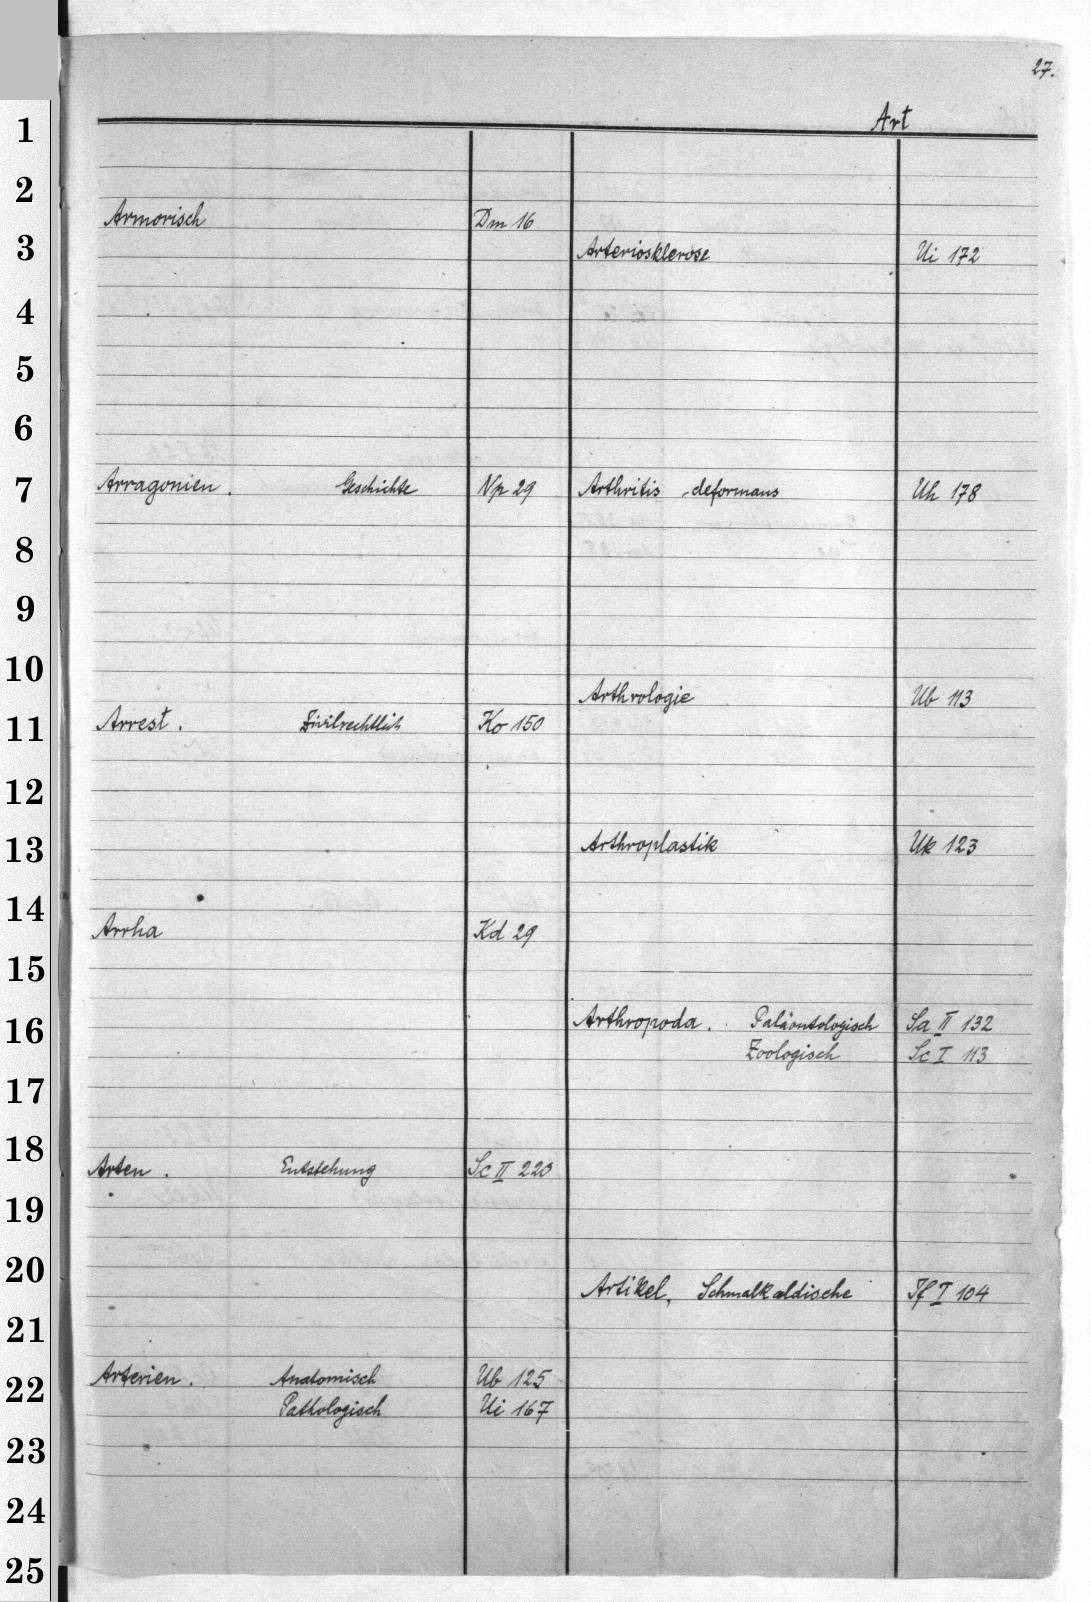 27.
Art
Armorisch Dm 16
Arragonien. Geschichte Np 29
Arrest. Zivilrechtlich Ko 150
Arrha Kd 29
Arten. Entstehung Sc II 220
Arterien. Anatomisch Ub 125
Pathologisch Ui 167
Arteriosklerose Ui 172
Arthritis deformans Uh 178
Arthrologie Ub 113
Arthroplastik Uk 123
Arthropoda. Paläontologisch Sa II 132
Zoologisch Sc I 113
Artikel, Schmalkaldische If I 104
1
2
3
4
5
6
7
8
9
10
11
12
13
14
15
16
17
18
19
20
21
22
23
24
25